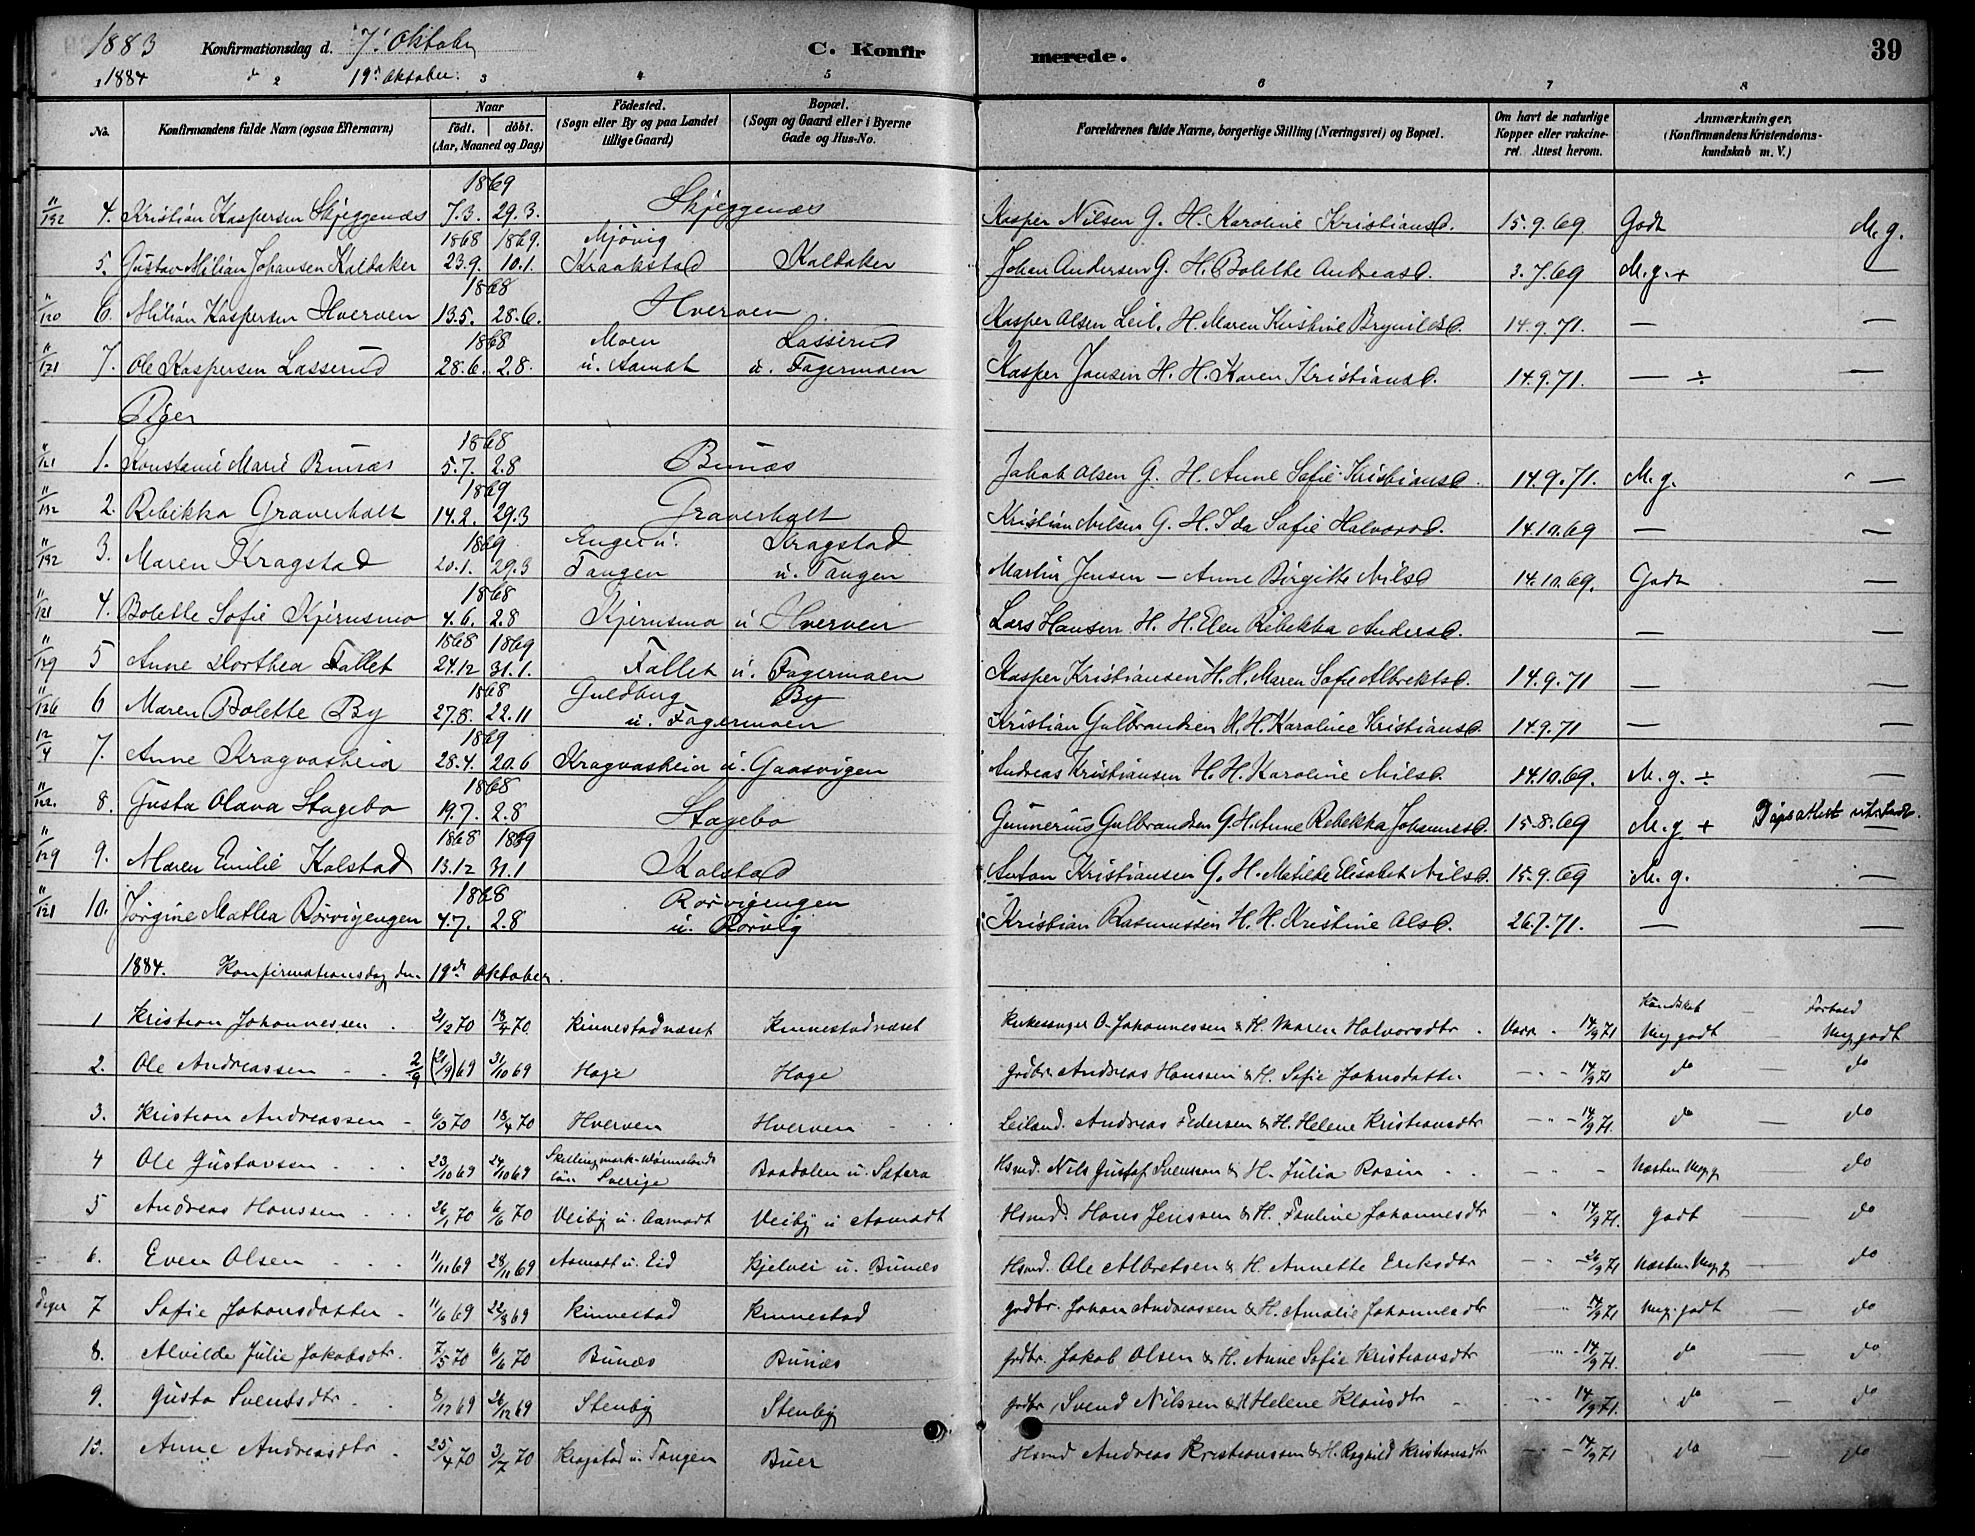 1883 Konfirmationsdag d. 7. Oktober C. Konfirmerede. 39
1884 d 19de Oktober.
2 3 4 5 6 7 8
No. Konfirmandens fulde Navn (ogsaa Efternavn) Naar födt. döbt. (Aar, Maaned og Dag) Födested. (Sogn eller By og paa Landet tillige Gaard) Bopæl. (Sogn og Gaard eller i Byerne Gade og Hus-No. Forældrenes fulde Navne, borgerlige Stilling (Næringsvei) og Bopæl. Om havt de naturlige Kopper eller vakcineret. Attest herom. Anmærkninger. (Konfirmandens Kristendomskundskab m. V.)
1869
11/132 4. Kristian Kaspersen Skjeggenæs 7.3. 29.3. Skjeggenæs Kasper Nilsen G. H. Karoline Kristiansd. 15.9.69 Godt M.g.
1868 1869. Mjövig
5. Gustav Milian Johansen Kaldaker 23.9. 10.1. Kraakstad Kaldaker Johan Andersen G. H. Bolette Andreasd. 3.7.69 M.g.+ —
1868
11/120 6. Milian Kaspersen Hverven 13.5. 28.6. Hverven Kasper Olsen Leil. H. Maren Kristine Brynildsd. 14.9.71. — —
1868 Moen Lasserud
11/121 7. Ole Kaspersen Lasserud 28.6. 2.8. u. Aamot u. Fagermoen Kasper Jensen H. H. Karen Kristiansd. 14.9.71. — ÷ —
Piger
1868
11/121 1. Konstanse Marie Bunæs 5.7. 2.8 Bunæs Jakob Olsen G. H. Anne Sofie Kristiansd. 14.9.71. M.g. —
1869
11/132 2. Rebikka Graverholt 14.2. 29.3 Graverholt Kristian Nilsen G. H. Ida Sofie Halvorsd. 14.10.69 — —
1869 Enger u. Kragstad
11/132 3. Maren Kragstad 20.1. 29.3 Tangen u. Tangen Martin Jensen — Anne Birgitte Nilsd 14.10.69. Godt —
1868
11/121 4. Bolette Sofie Kjernsmo 4.6. 2.8 Kjernsmo u. Hverven Lars Hansen H. H. Elen Rebekka Andersd. — —
1868 1869
11/129 5 Anne Dorthea Fallet 24.12 31.1. Fallet u. Fagermoen Kasper Kristiansen H. H. Maren Sofie Albrektsd. 14.9.71 — —
1868 Guldbug By
11/126 6 Maren Bolette By 27.8. 22.11 u. Fagermoen Kristian Gulbrandsen H. H. Karoline Kristiansd. 14.9.71 — —
1869
12/4 7. Anne Kragvaskeia 28.4. 20.6 Kragvaskeia u. Gaasvigen Andreas Kristiansen H. H. Karoline Nilsd. 14.10.69. M.g.÷ —
1868
11/122. 8. Gusta Olava Stagebo 19.7. 2.8 Stagebo Gunnerius Gulbrandsen G. H. Anne Rebekka Johannesd. 15.8.69 M.g + Dåpsattest utstedt. —
1868 1869
11/129 9. Maren Emilie Kolstad 13.12 31.1 Kolstad Anton Kristiansen G. H. Matilde Elisabet Nilsd. 15.9.69 M.g. —
1868 Rörvigengen
11/121 10. Jørgine Mathea Rörvigengen 4.7. 2.8 u. Rörvig Kristian Rasmussen H. H. Kristine Olsd. 26.7.71. — —
1884. Konfirmationsdag den 19de Oktober.
Kundskab — Forhold
1 Kristian Johannessen 21/2 70 18/4 70 Kinnestadvæet Kinnestadvæet Kirkesanger O. Johannessen & H. Maren Halvorsdtr. Vacc. 14/9 71 Meg. godt Meg. godt
2. Ole Andreassen 2/9 (21/9) 69 31/10 69 Hage Hage Grdbr. Andreas Hanssen & H. Sofie Johnsdatter — 14/9 71 do do
3. Kristian Andreassen 6/3 70 18/4 70 Hverven Hverven Leilend. Andreas Pedersen & H. Helene Kristiansdtr — 14/9 71. do do
4 Ole Gustavsen 23/10 69 24/10 69 Skellingmark - Wärmelands län Sverige Baadalen u. Sætera Hsmd. Nils Gustaf Svensson & H. Julia Rosin — næsten Meg.g. do
5 Andreas Hanssen 26/1 70 6/6 70 Veiby u. Aamodt Veiby u Aamodt Hsmd. Hans Jenssen & H. Pauline Johannesdtr — 14/9 71. godt — do
6. Even Olsen 11/11 69 28/11 69 Aamodt u. Eid Kjelvei u. Bunæs Hsmd. Ole Albretsen & H. Annette Eriksdtr — 26/9 71 Næsten Meg.g — do
Piger 7 Sofie Johansdatter 11/6 69 22/8 69 Kinnestad Kinnestad Grdbr. Johan Andreassen & H. Amalie Johannesdtr 14/9 71 Meg. godt — do
8. Alvilde Julie Jakobsdtr. 7/5 70 6/6 70 Bunæs Bunæs Grdbr. Jakob Olsen & H. Anne Sofie Kristiansdtr 14/9 71. do — do
9. Gusta Svendsdtr 8/12 69 26/12 69 Stenby Stenby Grdbr. Svend Nilssen & H Helene Klausdtr 14/9 71. do — do
10. Anne Andreasdtr 25/4 70 3/7 70 Kragstad u. Tangen Buer Hsmd Andreas Kristianssen & H. Ragnild Kristiansdtr — 14/9 71 do — do